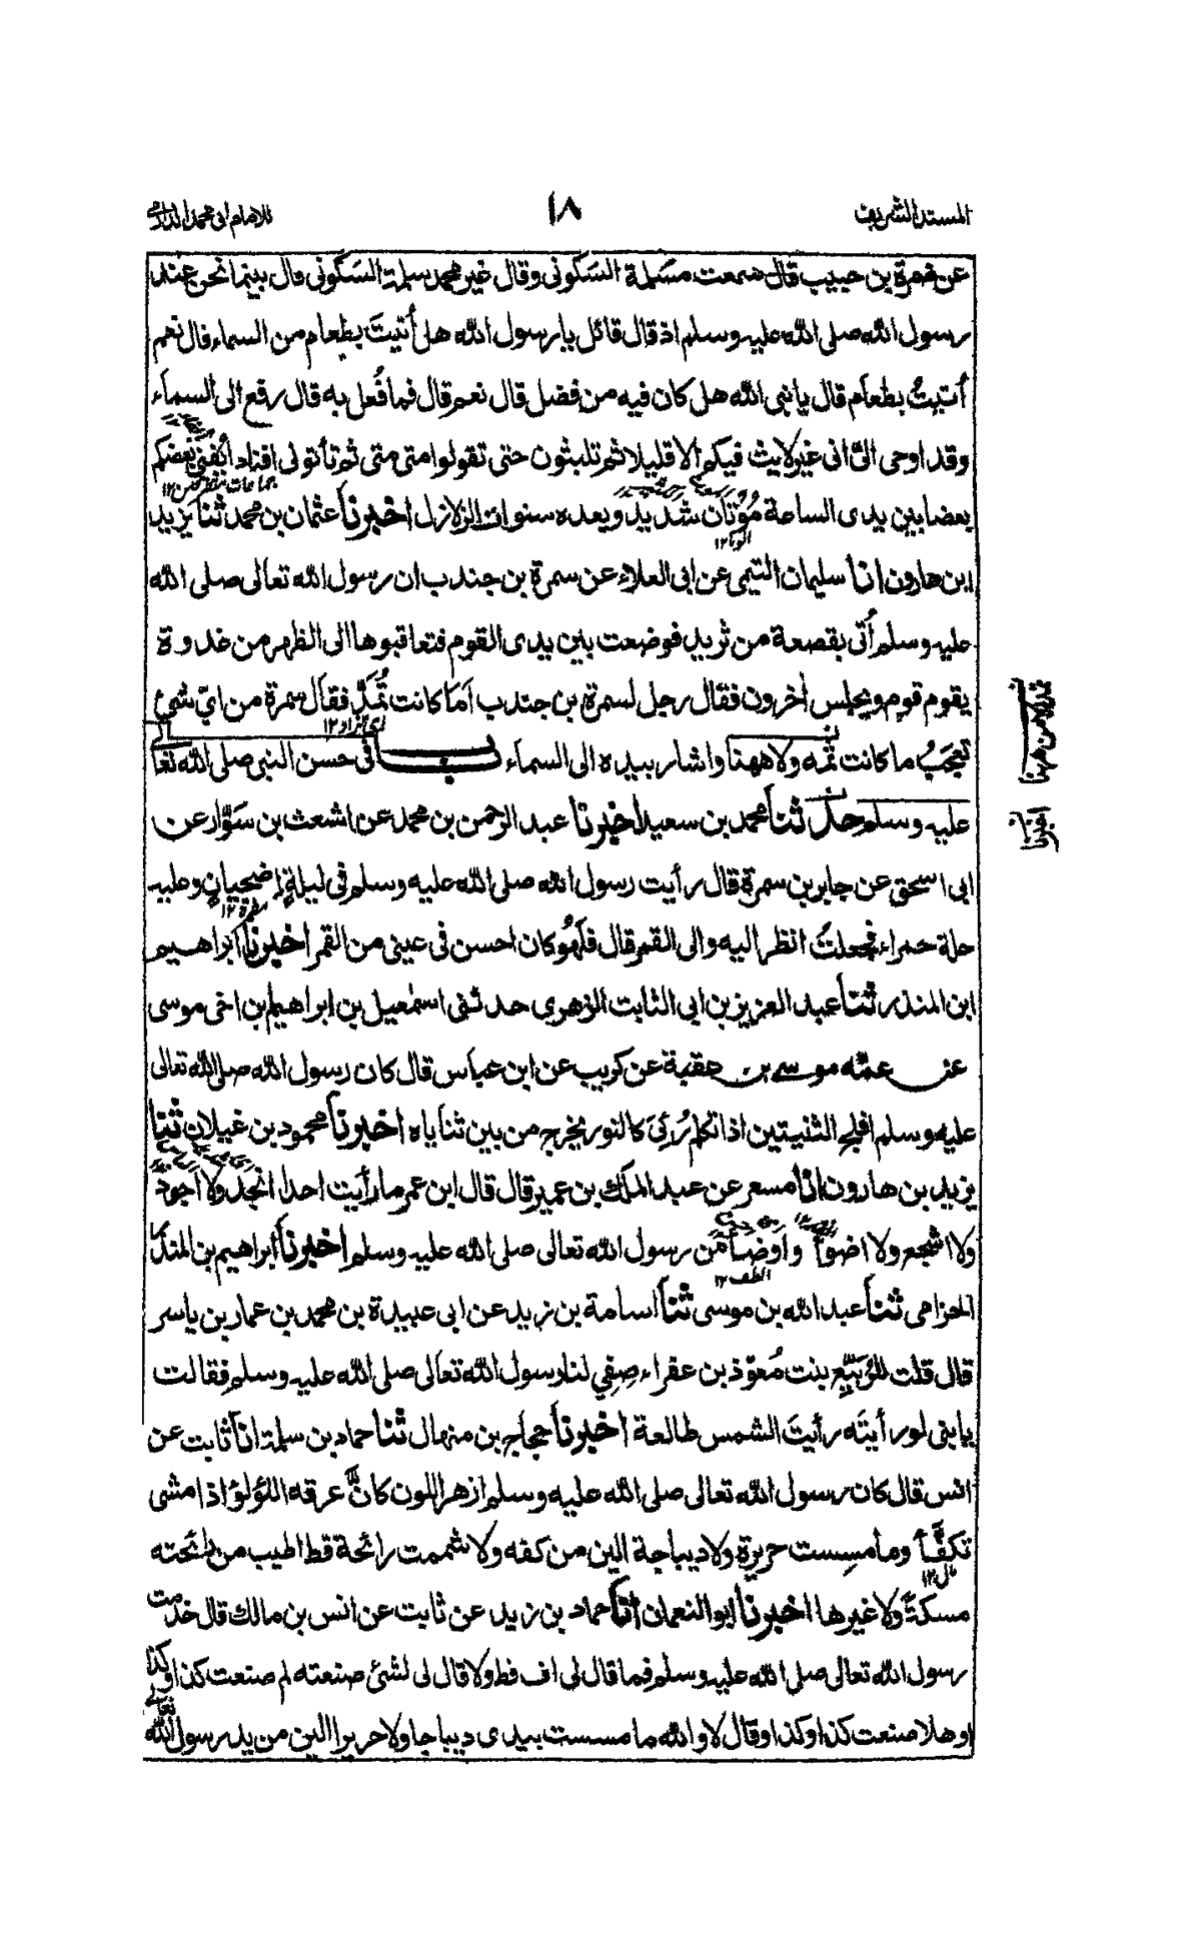 المسند الشريف
١٨
للامام ابى محمد الدارمى
عن ضمرة بن حبيب قال سمعت مسلمة السكونى وقال غير محمد سلمة السكونى قال بينما نحن عند
رسول الله صلى الله عليه وسلم اذ قال قائل يا رسول الله هل أتيتَ بطعام من السماء قال نعم
أتيتُ بطعام قال يا نبى الله هل كان فيه من فضل قال نعم قال فما فُعل به قال رفع الى السماء
وقد اوحى الىّ انى غير لابث فيكم الا قليلا ثم تلبثون حتى تقولوا متى متى ثم تأتونى افنادا يُفنى بعضكم
جماعات متفرقين ١٢
بعضا بين يدى الساعة مُوْتان شديد وبعده سنوات الزلازل اخبرنا عثمان بن محمد ثنا يزيد
الوباء ١٢
ابن هارون انا سليمان التيمى عن ابى العلاء عن سمرة بن جندب ان رسول الله تعالى صلى الله
عليه وسلم أُتى بقصعة من ثريد فوضعت بين يدى القوم فتعاقبوها الى الظهر من غدوة
يقوم قوم ويجلس أخرون فقال رجل لسمرة بن جندب أما كانت تُمَدُّ فقال سمرة من اىّ شئ
اى تزاد ١٢
تعجبُ ما كانت تمد ولا ههنا واشار بيده الى السماء باب فى حسن النبى صلى الله تعالى
عليه وسلم حدثنا محمد بن سعيد اخبرنا عبد الرحمن بن محمد عن اشعث بن سوّار عن
ابى اسحق عن جابر بن سمرة قال رأيت رسول الله صلى الله عليه وسلم فى ليلةٍ إضحيانٍ وعليه
مقمرة ١٢
حلة حمراء فجعلتُ انظر اليه والى القمر قال فلَهُو كان احسن فى عينى من القمر اخبرنا ابراهيم
ابن المنذر ثنا عبد العزيز بن ابى الثابت الزهرى حدثنى اسمٰعيل بن ابراهيم بن اخى موسى
عن عمّه موسى بن عقبة عن كريب عن ابن عباس قال كان رسول الله صلى الله تعالى
عليه وسلم افلج الثنيتين اذا تكلم رُئِىَ كالنور يخرج من بين ثناياه اخبرنا محمود بن غيلان ثنا
يزيد بن هارون انا مسعر عن عبد الملك بن عمير قال قال ابن عمر ما رأيت احدا انجد ولا اجود
ولا اشجع ولا اضوأ واوضأ من رسول الله تعالى صلى الله عليه وسلم اخبرنا ابراهيم بن المنذر
الطف ١٢
الحزامى ثنا عبد الله بن موسى ثنا اسامة بن زيد عن ابى عبيدة بن محمد بن عمار بن ياسر
قال قلت للرُبَيِّع بنت مُعوّذ بن عفراء صِفِي لنا رسول الله تعالى صلى الله عليه وسلم فقالت
يا بنى لو رأيتَه رأيتَ الشمس طالعة اخبرنا حجاج بن منهال ثنا حماد بن سلمة انا ثابت عن
انس قال كان رسول الله تعالى صلى الله عليه وسلم ازهر اللون كانّ عرقه اللؤلؤ اذا مشى
تكفَّأ وما مسِست حريرة ولا ديباجة الين من كفه ولا شممت رائحة قط اطيب من رائحته
مال ١٢
مسكةً ولا غيرها اخبرنا ابو النعمان انا حماد بن زيد عن ثابت عن انس بن مالك قال خدمت
رسول الله تعالى صلى الله عليه وسلم فما قال لى اف قط ولا قال لى لشئ صنعته لم صنعت كذا وكذا
او هلا صنعت كذا وكذا وقال لا والله ما مسست بيدى ديباجا ولا حريرا الين من يد رسول الله
تعالى
اخبرنا